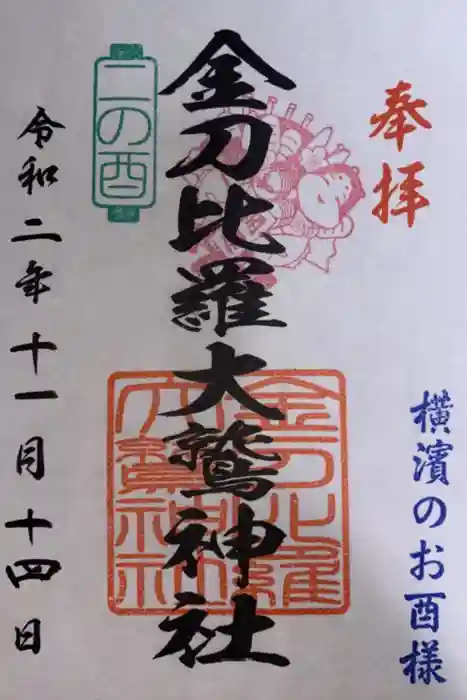 奉拝
横濱のお酉様
金刀比羅大鷲神社
二の酉
令和二年十一月十四日
金刀比羅
大鷲神社